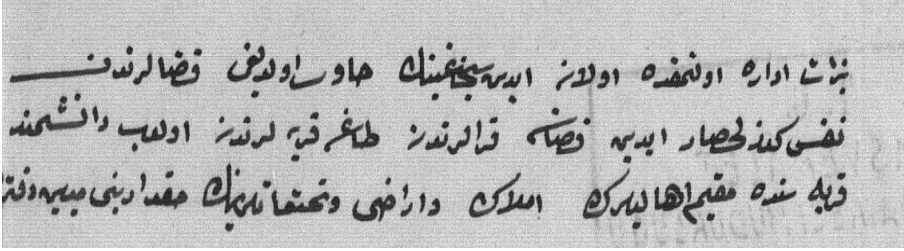 بذات اداره اولنمقده اولان ايدين سنجاغينك حاوى اولديغى قضالرندن
نفس كوزلحصار ايدين قضاسى قرالرندن طاغ قريه لرندن اولوب دانشمند
قريه سنده مقيم اهاليلرك املاك واراضى وتمتعاتلرينك مقدارينى مبين دفتر